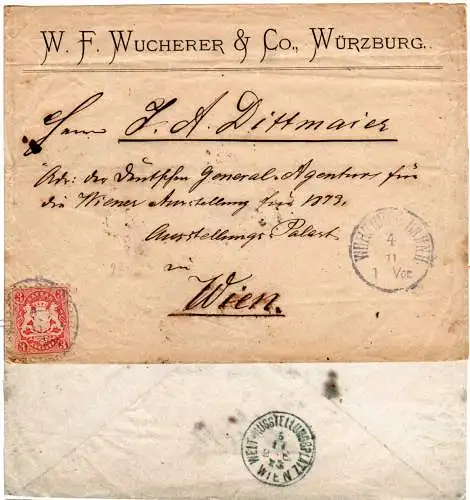 W. F. WUCHERER & Co., WÜRZBURG.
Herrn J. A. Dittmaier
Adr: der Deutschen General-Agentur für
die Wiener Ausstellung 1873.
Ausstellungs-Palast
in
Wien.
4
11
1 Vor
WELT-AUSSTELLUNGSPLATZ
WIEN